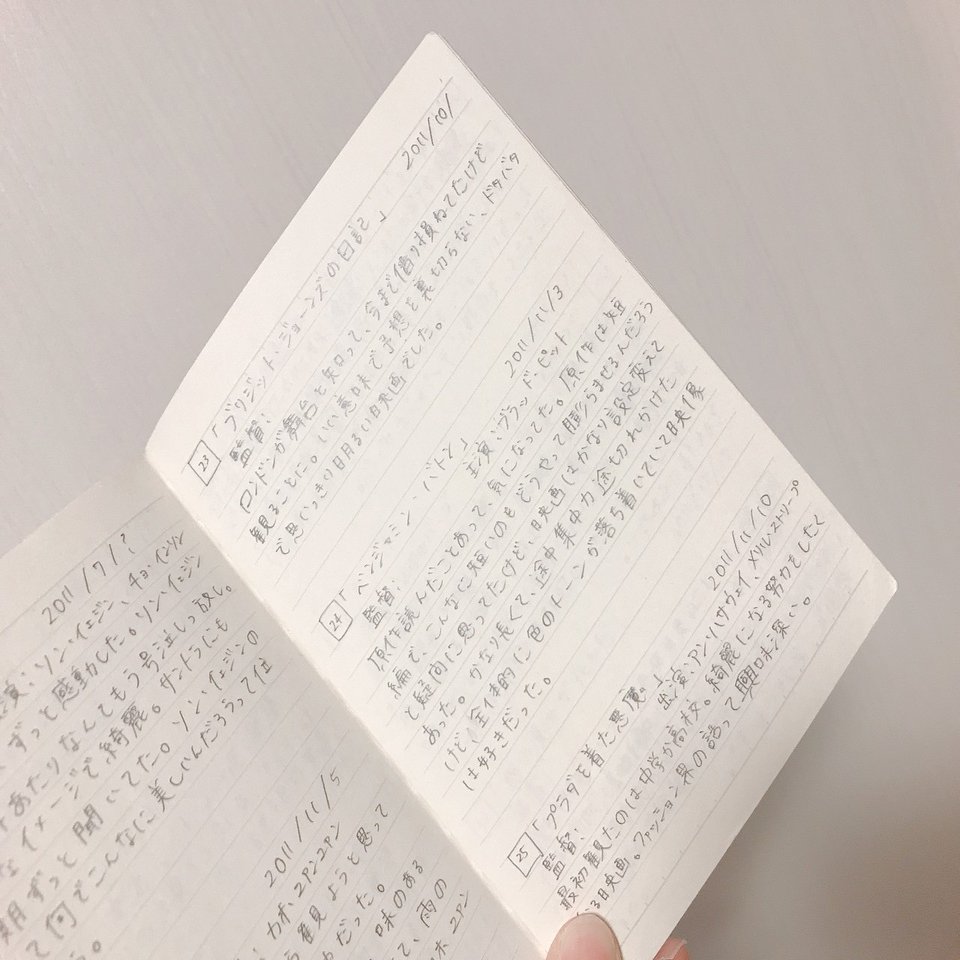 2011/10/
23 「ブリジット・ジョーンズの日記」
監督:
ロンドンが舞台と知って、今まで借り損ねてたけど
観ることに。いい意味で予想を裏切らない、ドタバタ
で思いっきり明るい映画でした。
2011/11/3
24 「ベンジャミン・バトン」
監督: 主演:ブラッド・ピット
原作読んだことあって、気になってた。原作は短
編で、こんなに短いのもどうやって膨らませるんだろう
と疑問に思ってたけど、映画はかなり設定変えて
あった。かなり長くて、途中集中力途切れかけた
けど全体的に色のトーンが落ち着いていて映像
は好きだった。
2011/11/10
25 「プラダを着た悪魔。」
監督: 出演:アン・ハサウェイ、メリル・ストリープ
最初観たのは中学か高校。綺麗になる努力をしたく
なる映画。ファッション界の話って興味深い。
2011/7/?
演:ソン・イェジン、チョ・インソン
ずっと感動した。ソン・イェジン
あたりなんてもう号泣しっ放し。
なイメージで綺麗。サントラにも
期ずっと聞いてた。ソン・イェジンの
て何でこんなに美しいんだろうって位
。
2011/11/5
: カホ、ユアンユアン
観ようと思って
だった。
味のある
て、雨の
ユアン